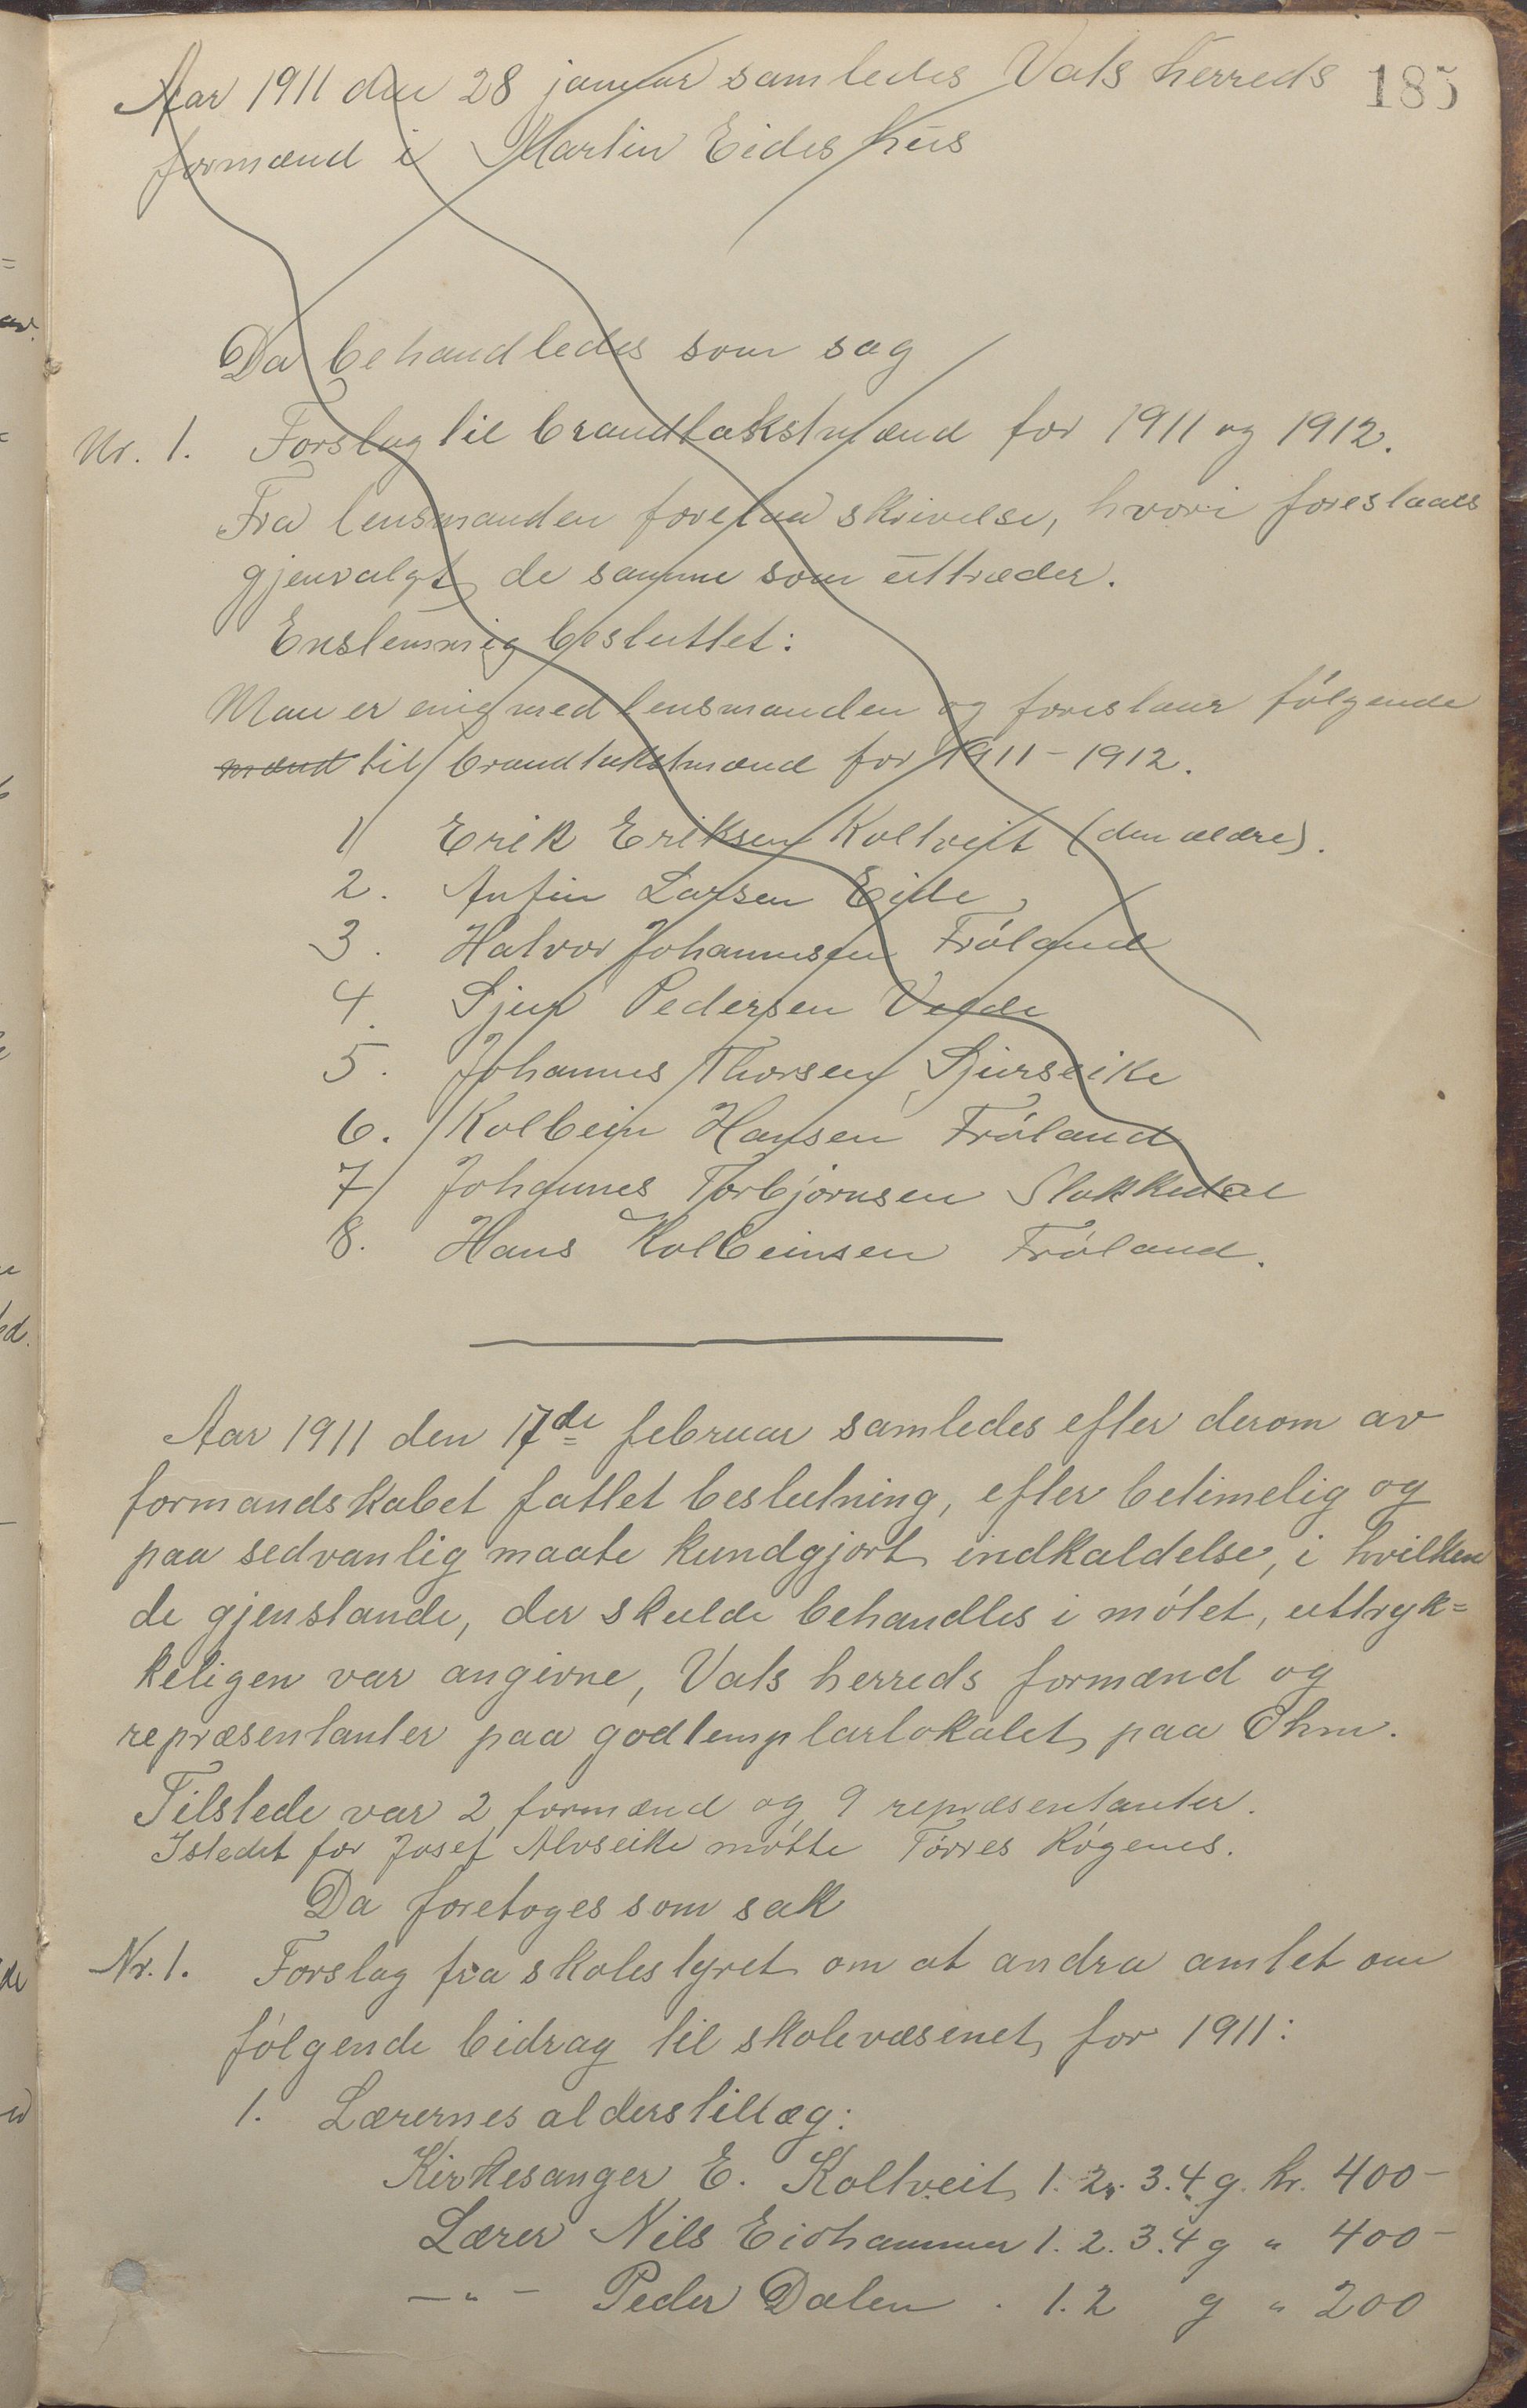 Aar 1911 den 28 januar samledes Vats herreds 185
formænd i Martin Eides hus
Da behandledes som sag
Nr. 1. Forslag til brandtakstmænd for 1911 og 1912.
Fra lensmanden forelaa skrivelse, hvori foreslaaes
gjenvalgt de samme som uttræder.
Enstemmig besluttet:
Man er enig med lensmanden og foreslaar følgende
mænd til brandtakstmænd for 1911-1912.
1 Erik Eriksen Koltveit (den ældre).
2. Anfin Larsen Eide,
3. Halvor Johannesen Frøland
4. Sjur Pedersen Vatde
5. Johannes Thorsen Sjurseike
6. Kolbein Hansen Frøland
7 Johannes Torbjørnsen Slokkedal
8. Hans Kolbeinsen Frøland.
Aar 1911 den 17de februar samledes efter derom av
formandskabet fattet beslutning, efter betimelig og
paa sedvanlig maate kundgjort indkaldelse, i hvilken
de gjenstande, der skulde behandles i møtet, uttryk=
keligen var angivne, Vats herreds formænd og
repræsentanter paa godtemplarlokalet paa Øhm.
Tilstede var 2 formænd og 9 repræsentanter.
Istedet for Josef Alvseike møtte Tørres Røgenes.
Da foretoges som sak
Nr. 1. Forslag fra skolestyret om at andra amtet om
følgende bidrag til skolevæsenet for 1911:
1. Lærernes alderstillæg:
Kirkesanger E. Koltveit 1. 2. 3. 4 g. kr. 400-
Lærer Nils Eidhammer 1. 2. 3. 4 g " 400-
-"- Peder Dalen . 1. 2 g " 200